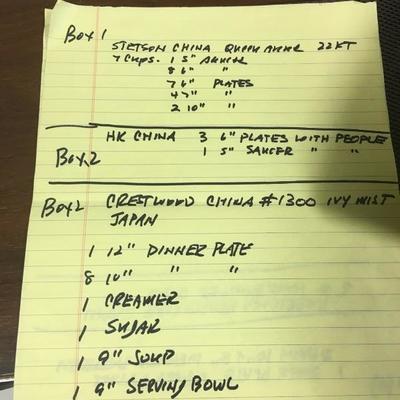 Box 1
STETSON CHINA QUEEN ANNE 22KT
7 CUPS. 1 5" SAUCER
8 6" "
7 6" PLATES
4 7" "
2 10" "
HK CHINA 3 6" PLATES WITH PEOPLE
Box 2 1 5" SAUCER " "
Box 2 CRESTWOOD CHINA #1300 IVY MIST
JAPAN
1 12" DINNER PLATE
8 10" " "
1 CREAMER
1 SUGAR
1 9" SOUP
1 9" SERVING BOWL